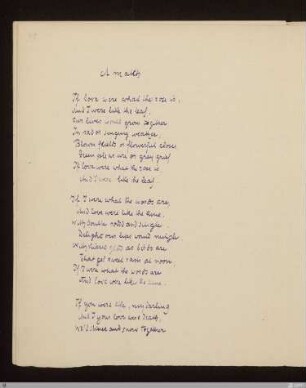 A match
If love were what the rose is,
And I were like the leaf,
Our lives would grow together
In sad or singing weather,
Blown fields or flowerful closes
Green pleasure or grey grief
If love were what the rose is
And I were like the leaf.
If I were what the words are,
And love were like the tune,
With double sound and single
Delight our lips would mingle
With kisses glad as birds are
That get sweet rain at noon
If I were what the words are
And love were like the tune.
If you were life, my darling
And I your love were death,
We'd shine and snow together